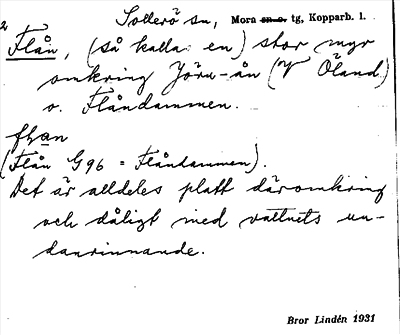 2
Sollerö sn, Mora sn o. tg, Kopparb. l.
Flån, (så kallar en) stor myr
omkring Jöru-ån (V Öland)
o. Flåndammen.
flan
(Flån G96 = Flåndammen).
Det är alldeles platt däromkring
och dåligt med vattnets un-
danrinnande.
Bror Lindén 1931